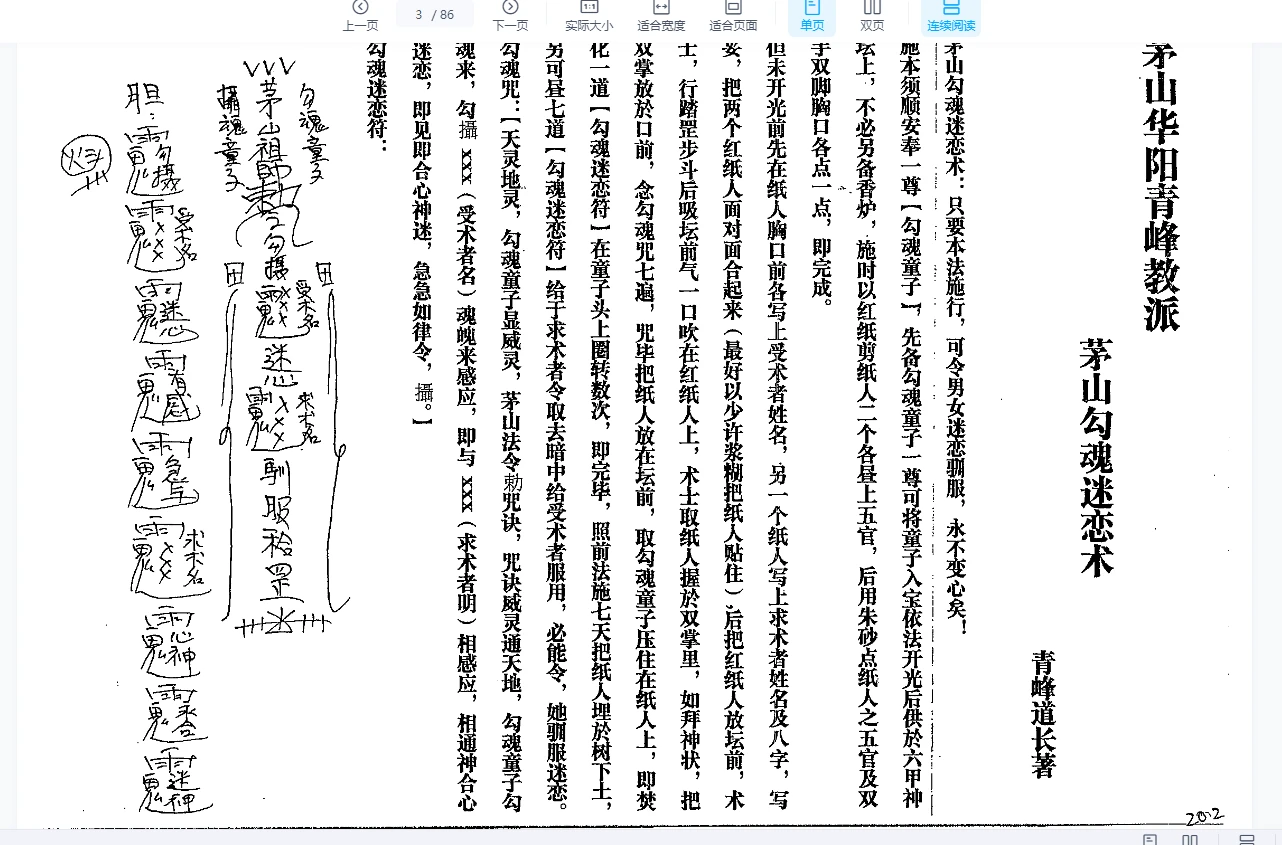 上一页
3 / 86
下一页
实际大小
适合宽度
适合页面
单页
双页
连续阅读
茅山华阳青峰教派
茅山勾魂迷恋术
青峰道长著
茅山勾魂迷恋术：只要本法施行，可令男女迷恋驯服，永不变心矣！
施本须顺安奉一尊【勾魂童子】，先备勾魂童子一尊可将童子入宝依法开光后供於六甲神
坛上，不必另备香炉，施时以红纸剪纸人二个各昼上五官，后用朱砂点纸人之五官及双
手双脚胸口各点一点，即完成。
但未开光前先在纸人胸口前各写上受术者姓名，另一个纸人写上求术者姓名及八字，写
妥，把两个红纸人面对面合起来（最好以少许浆糊把纸人贴住）后把红纸人放坛前，术
士，行踏罡步斗后吸坛前气一口吹在红纸人上，术士取纸人握於双掌里，如拜神状，把
双掌放於口前，念勾魂咒七遍，咒毕把纸人放在坛前，取勾魂童子压住在纸人上，即焚
化一道【勾魂迷恋符】在童子头上圈转数次，即完毕，照前法施七天把纸人埋於树下土，
另可昼七道【勾魂迷恋符】给于求术者令取去暗中给受术者服用，必能令，她驯服迷恋。
勾魂咒：【天灵地灵，勾魂童子显威灵，茅山法令勅咒诀，咒诀威灵通天地，勾魂童子勾
魂来，勾攝 XXX（受术者名）魂魄来感应，即与 XXX（求术者明）相感应，相通神合心
迷恋，即见即合心神迷，急急如律令，攝。】
勾魂迷恋符：
勾魂童子
茅山祖師勅令勾攝
受术名
XXX
迷恋
求术名
XXX
馴服
罡
攝魂童子
胆：
勾攝
受术名
XXX
迷恋
有感
求术名
XXX
心神
迷神
20.2